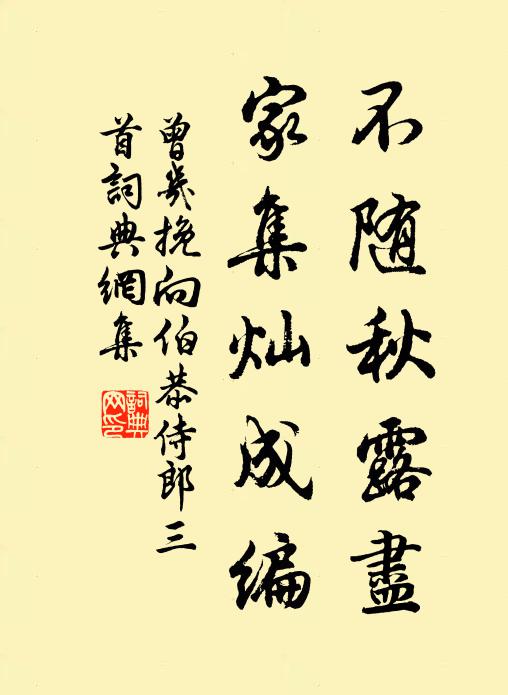 不随秋露盡
家集灿成编
曾幾挽向伯恭侍郎三
首詞典網集
詞典网印